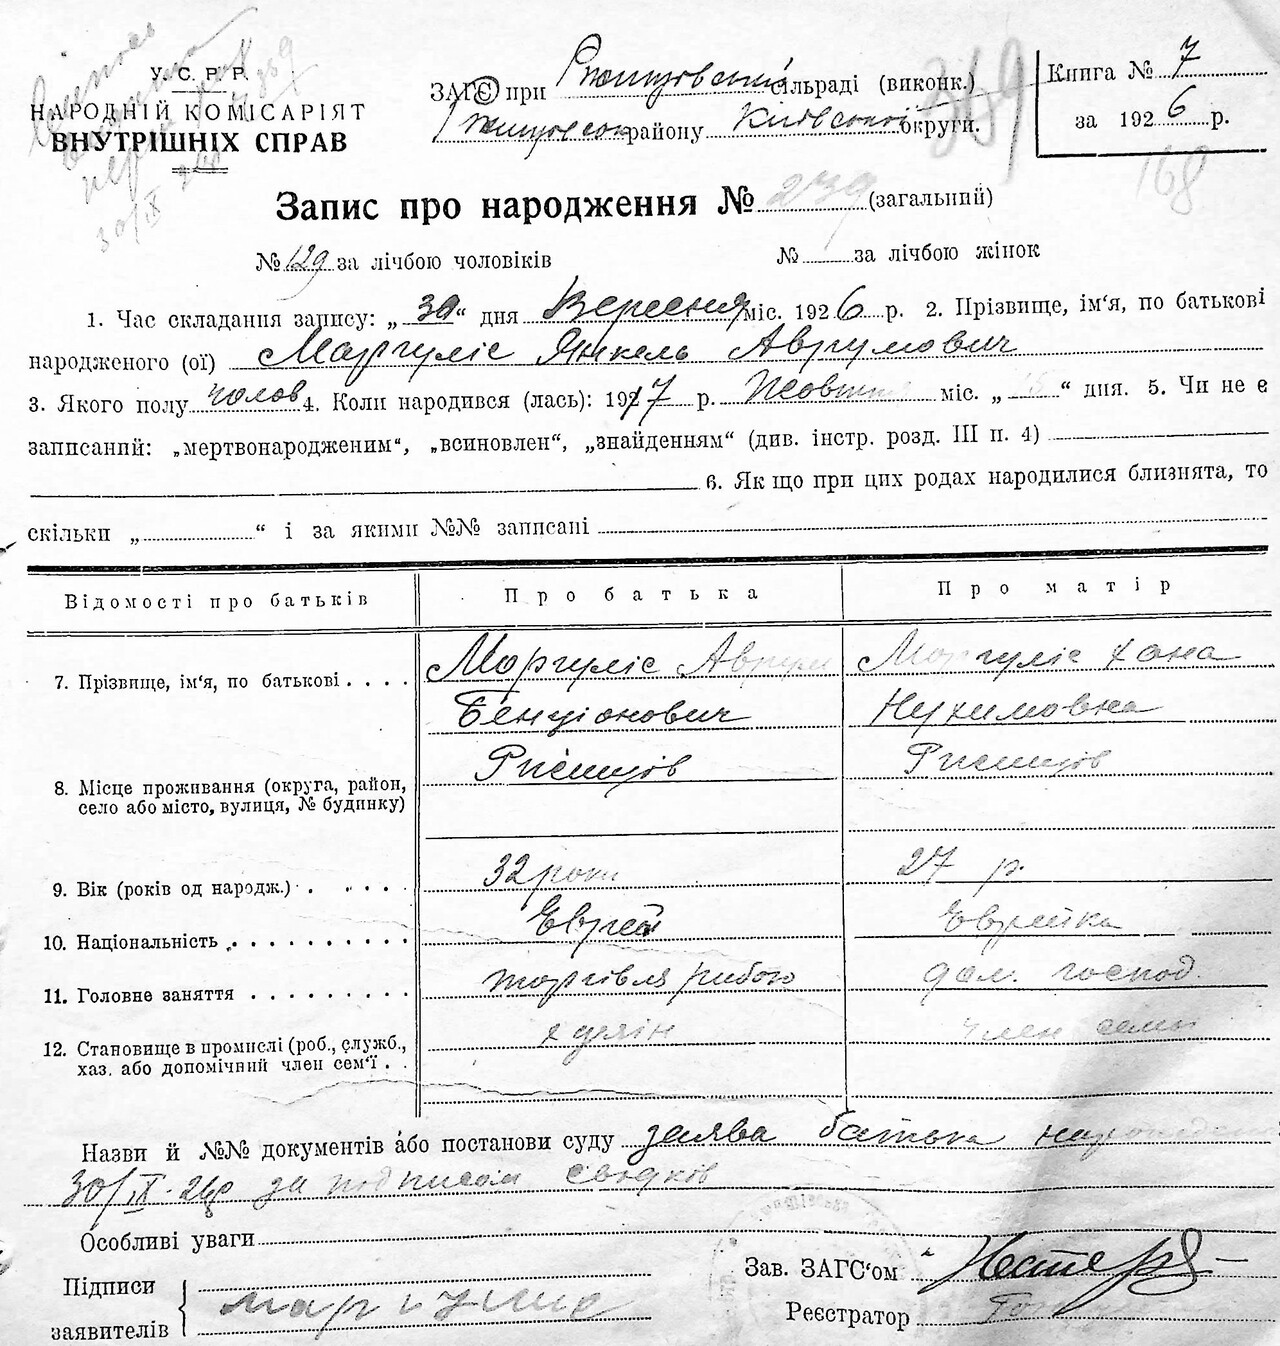 У. С. Р. Р.
НАРОДНІЙ КОМІСАРІЯТ
ВНУТРІШНІХ СПРАВ
ЗАГС при Ржищовський сільраді (виконк.)
Ржищовськ району Київської округи.
369
Книга № 7
за 1926 р.
168
Запис про народження № 239 (загальний)
№ 129 за лічбою чоловіків № за лічбою жінок
1. Час складання запису: „30“ дня Вересня міс. 1926 р. 2. Прізвище, ім‘я, по батькові
народженого (ої) Моргуліс Янкель Аврумович
3. Якого полу чолов 4. Коли народився (лась): 1917 р. Жовтня міс. „ “ дня. 5. Чи не є
записаний: „мертвонародженим“, „всиновлен“, „знайденням“ (див. інстр. розд. III п. 4)
6. Як що при цих родах народилися близнята, то
скільки „ “ і за якими №№ записані
Відомості про батьків Про батька Про матір
7. Прізвище, ім‘я, по батькові Моргуліс Аврум Моргуліс Хана
Бенціонович Нухимовна
8. Місце проживання (округа, район, село або місто, вулиця, № будинку) Ржищов Ржищов
9. Вік (років од народж.) 32 роки 27 р.
10. Національність Єврей Єврейка
11. Головне заняття торгівля рибою дом. господ.
12. Становище в промислі (роб., служб., хаз. або допомічний член сем‘ї хазяїн член семьи
Назви й №№ документів або постанови суду заява батька
30/IX-26р за подписом свідків
Особливі уваги
Підписи
заявителів
Моргулис
Зав. ЗАГС‘ом
Реєстратор